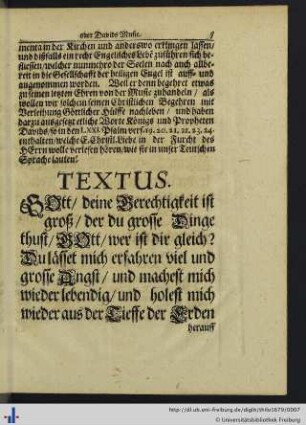 oder Davids Music. 5
menta in der Kirchen und anderswo erklingen lassen/
und dißfalls ein recht Engelisches Lebē zuführen sich be-
fliessen/welcher nunmehro der Seelen nach auch allbe-
reit in die Gesellschafft der heiligen Engel ist auff- und
angenommen worden. Weil er denn begehret etwas
zu seinen letzten Ehren von der Music zuhandeln / als
wollen wir solchem seinen Christlichen Begehren mit
Verleihung Göttlicher Hülffe nachleben / und haben
darzu ausgesetzet etliche Worte Königs und Propheten
Davids/ so in dem LXXI. Psalm vers. 19. 20. 21. 22. 23. 24.
enthalten/welche E. Christl. Liebe in der Furcht des
HErrn wolle verlesen hören/wie sie in unser Teutschen
Sprache lauten:
TEXTUS.
GOtt/ deine Gerechtigkeit ist
groß/ der du grosse Dinge
thust/ GOtt/ wer ist dir gleich?
Du lässet mich erfahren viel und
grosse Angst/ und machest mich
wieder lebendig/ und holest mich
wieder aus der Tieffe der Erden
herauff
http://dl.ub.uni-freiburg.de/diglit/thilo1679/0007
© Universitätsbibliothek Freiburg